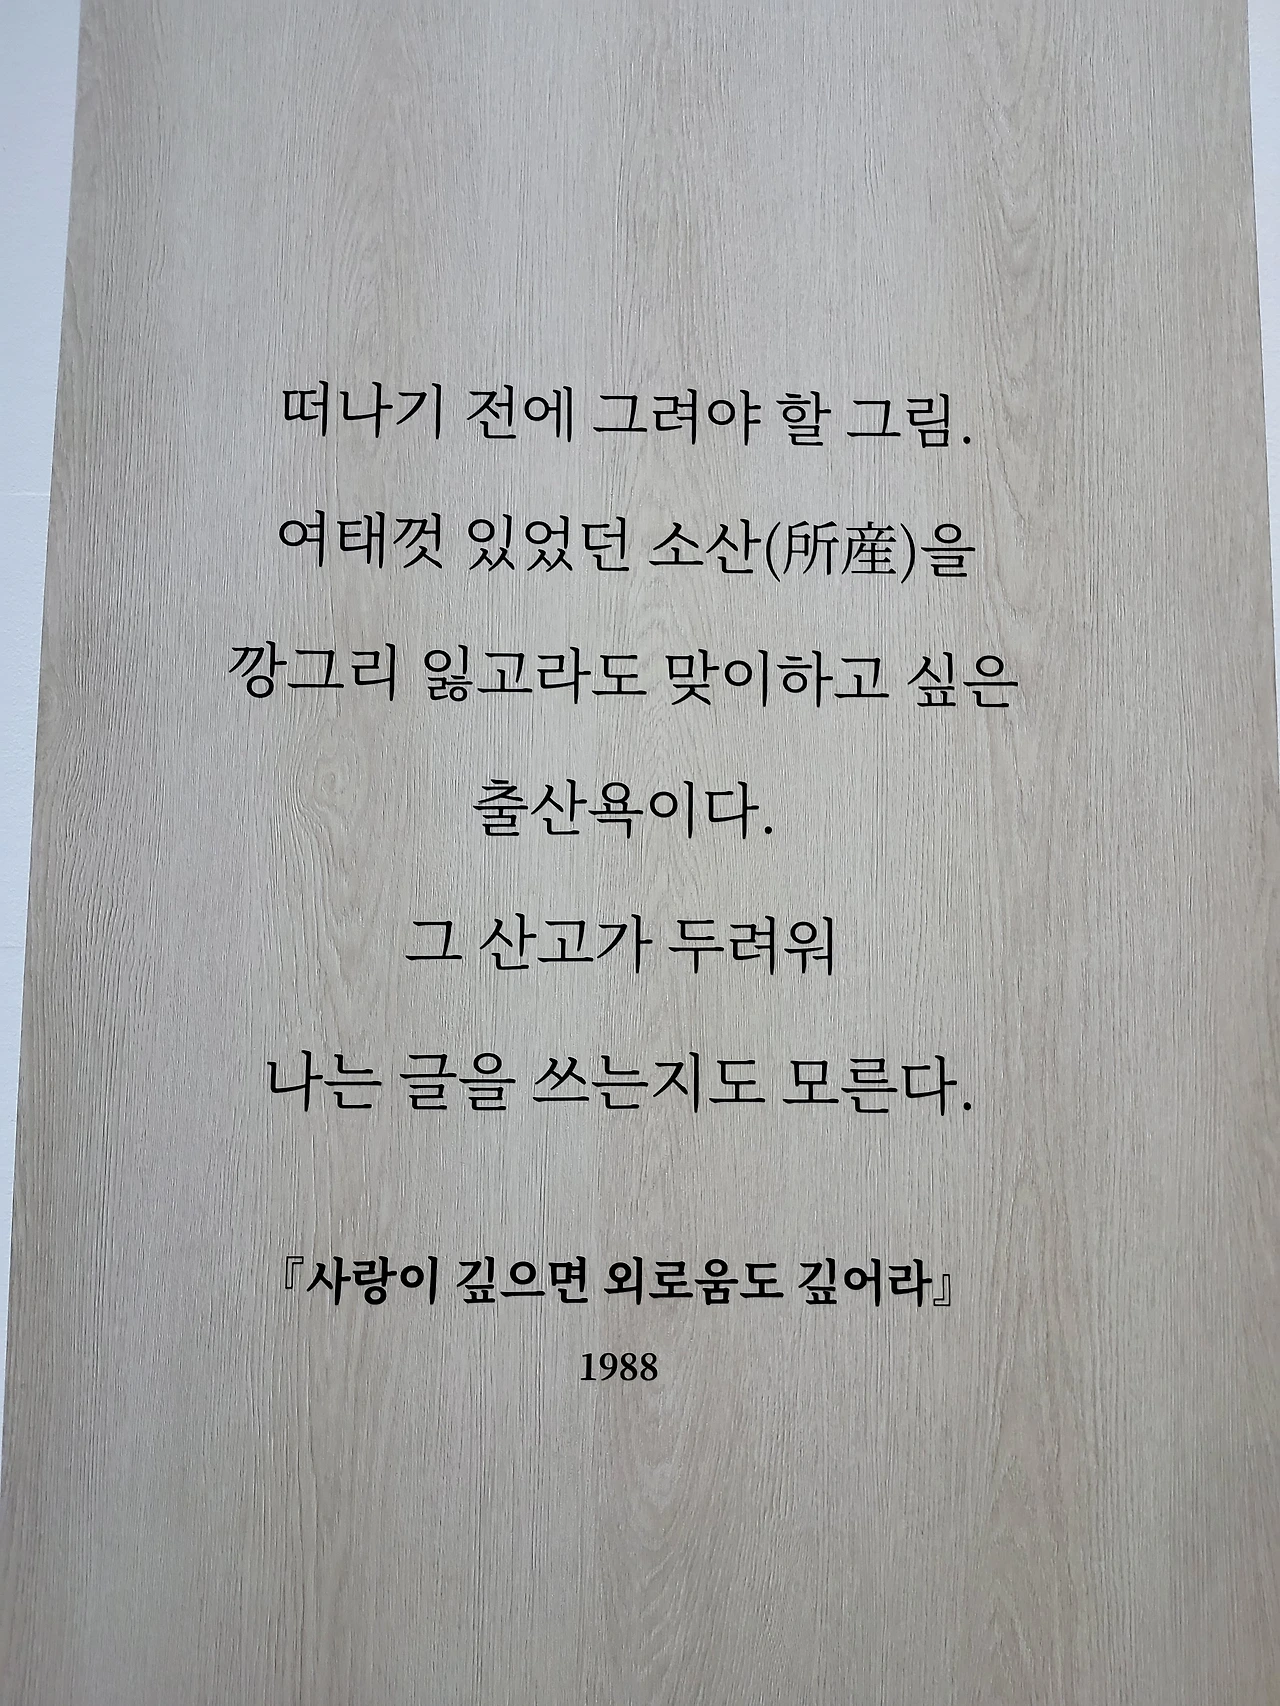 떠나기 전에 그려야 할 그림.
여태껏 있었던 소산(所産)을
깡그리 잃고라도 맞이하고 싶은
출산욕이다.
그 산고가 두려워
나는 글을 쓰는지도 모른다.
『사랑이 깊으면 외로움도 깊어라』
1988